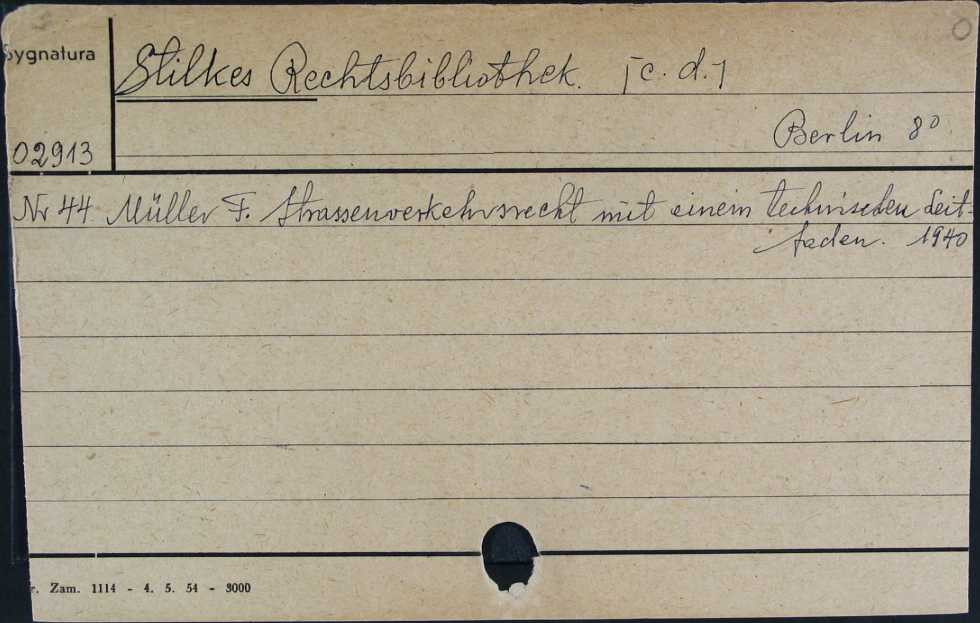 Sygnatura
Stilkes Rechtsbibliothek. [c. d.]
Berlin 8°
02913
Nr 44 Müller F. Strassenverkehrsrecht mit einem technischen Leit-
faden. 1940
r. Zam. 1114 - 4. 5. 54 - 3000